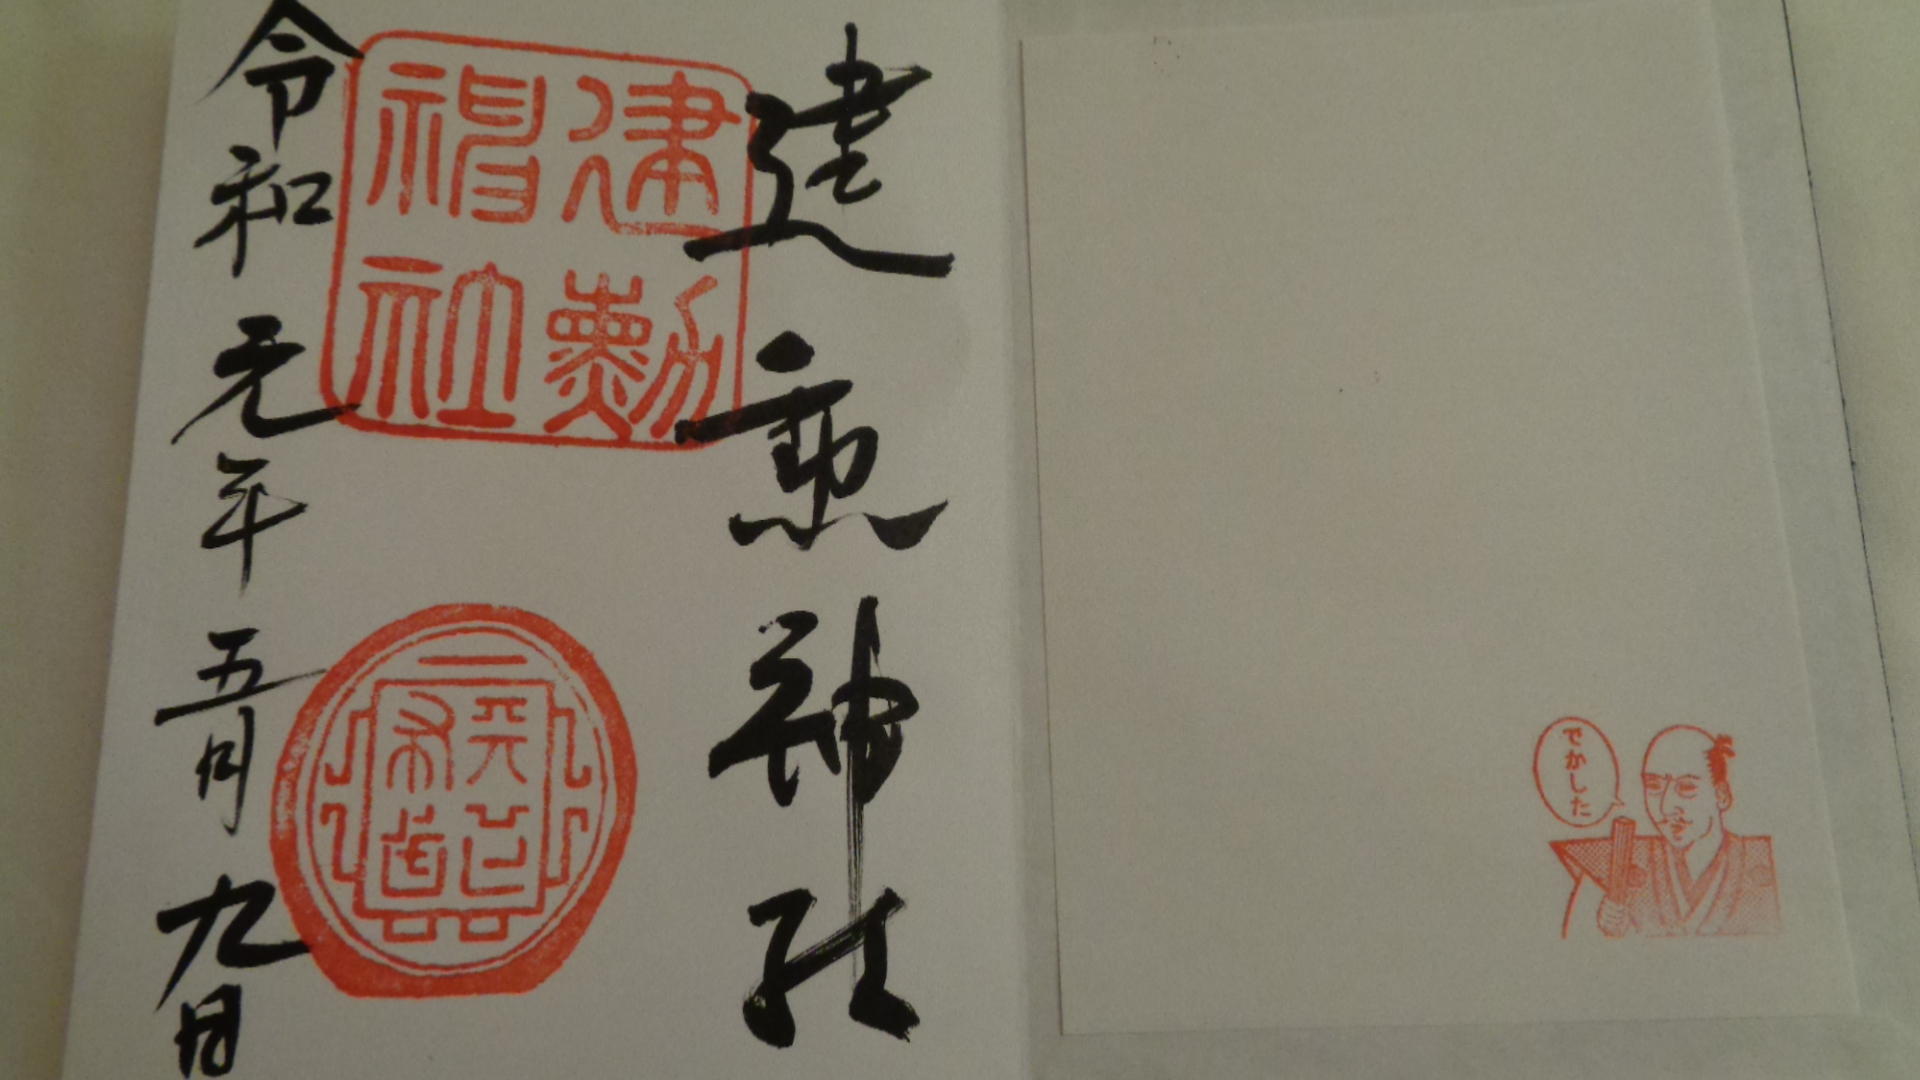 でかした
建勲神社
建勲
神社
天下布武
令和元年五月九日